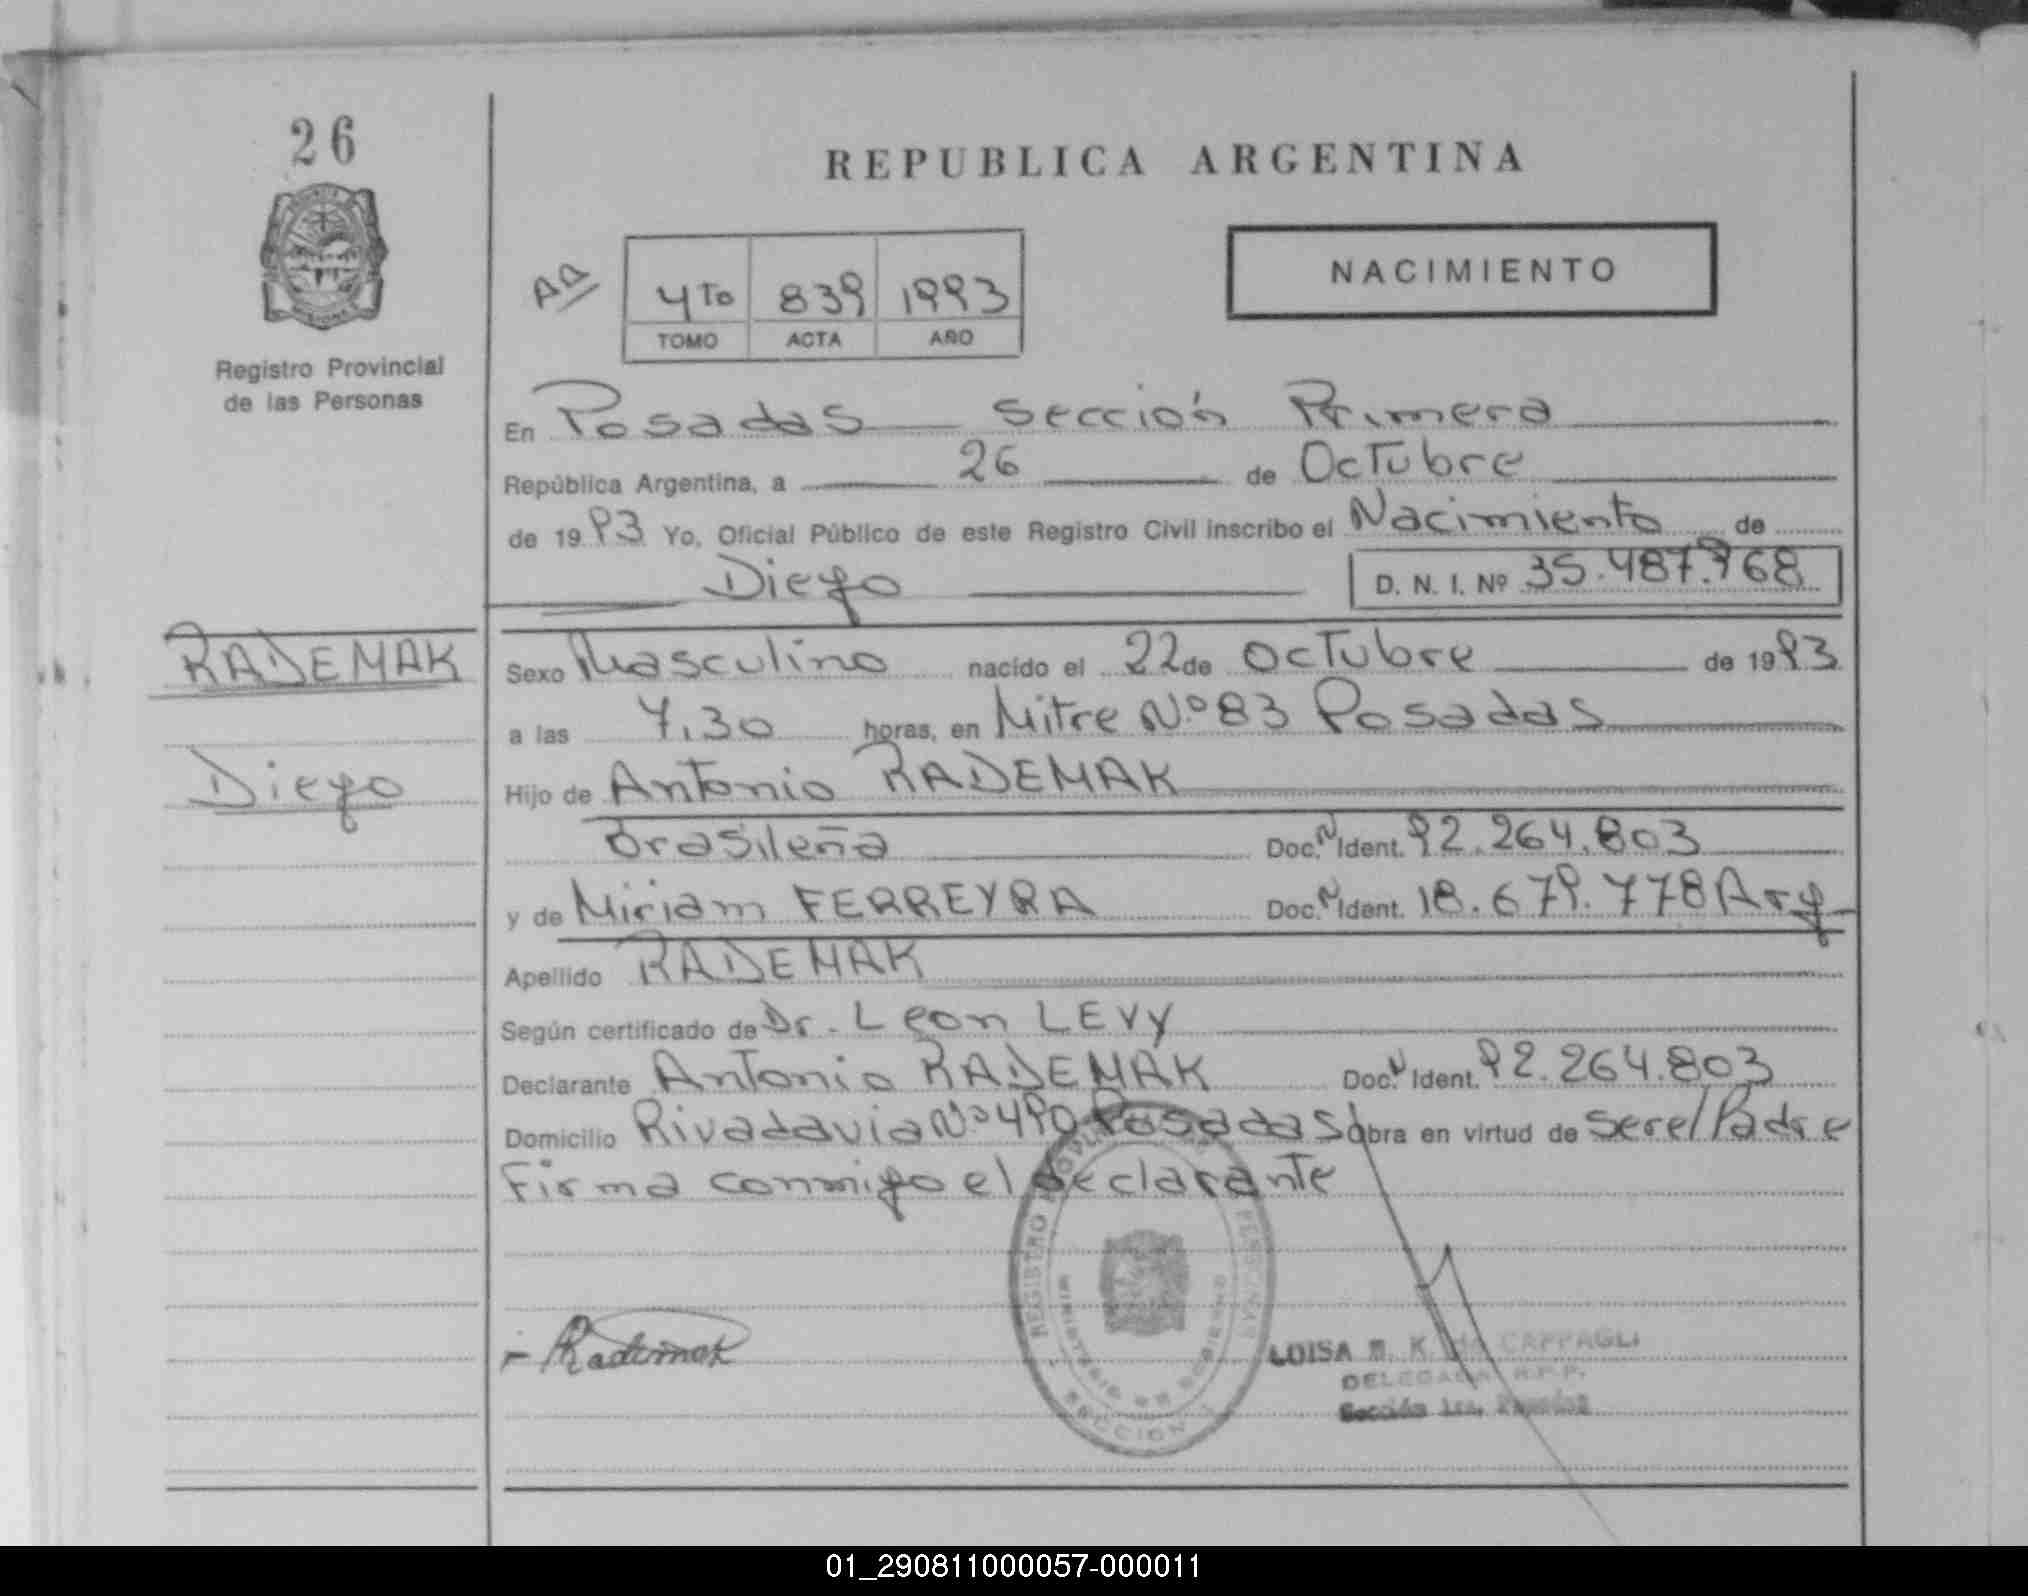 26
REPUBLICA ARGENTINA
NACIMIENTO
4To 839 1993
TOMO ACTA AÑO
Registro Provincial
de las Personas
En Posadas Sección Primera
República Argentina, a 26 de Octubre
de 1993 Yo, Oficial Público de este Registro Civil inscribo el Nacimiento de
Diego D. N. I. Nº 35.487.768
RADEMAK
Diego
Sexo Masculino nacido el 22 de Octubre de 1993
a las 7,30 horas, en Mitre Nº 83 Posadas
Hijo de Antonio RADEMAK
Brasileña Doc. N Ident. 92.264.803
y de Miriam FERREYRA Doc. N Ident. 18.679.778 Arg
Apellido RADEMAK
Según certificado de Dr. Leon LEVY
Declarante Antonio RADEMAK Doc. N Ident. 92.264.803
Domicilio Rivadavia Nº 490 Posadas Obra en virtud de ser el Padre
Firma conmigo el declarante
Rademak
REGISTRO PERSONAS
MINISTERIO DE GOBIERNO
SECCION 1
LUISA K. de CAPPAGLI
DELEGADA R.P.P.
Sección 1ra. Posadas
01_290811000057-000011